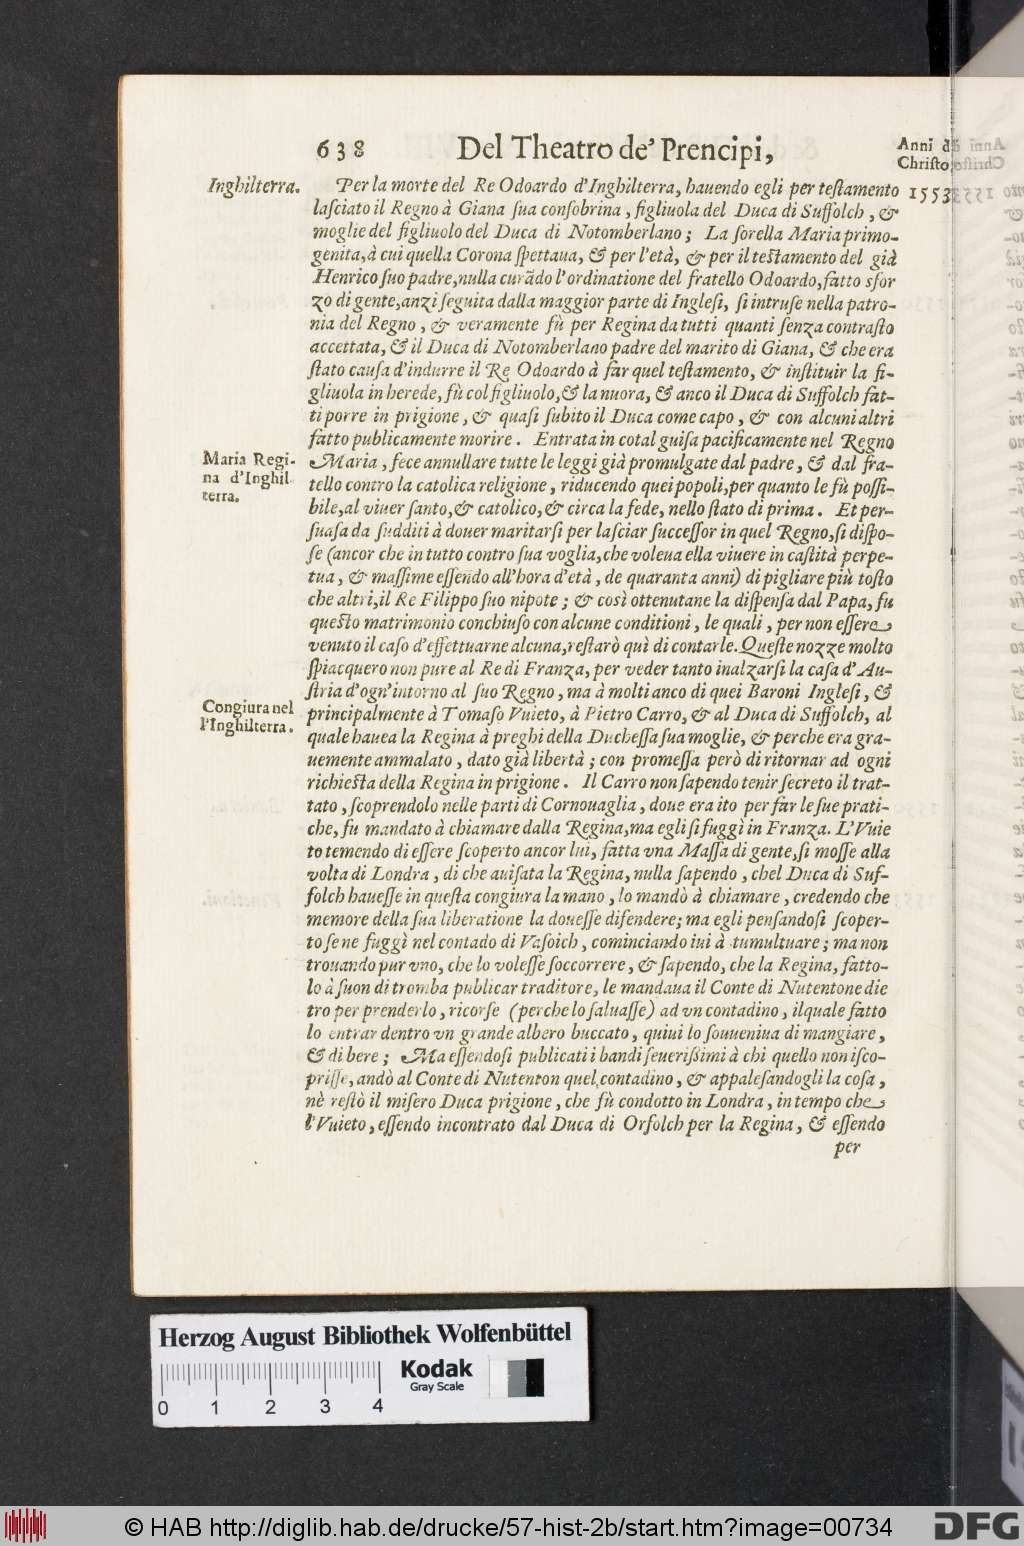 638 Del Theatro de' Prencipi, Anni di Christo
Inghilterra. Per la morte del Re Odoardo d'Inghilterra, hauendo egli per teſtamento 1553
laſciato il Regno à Giana ſua conſobrina, figliuola del Duca di Suffolch, &
moglie del figliuolo del Duca di Notomberlano; La ſorella Maria primo-
genita, à cui quella Corona ſpettaua, & per l'età, & per il teſtamento del già
Henrico ſuo padre, nulla curãdo l'ordinatione del fratello Odoardo, fatto sfor
zo di gente, anzi ſeguita dalla maggior parte di Ingleſi, ſi intruſe nella patro-
nia del Regno, & veramente fù per Regina da tutti quanti ſenza contraſto
accettata, & il Duca di Notomberlano padre del marito di Giana, & che era
ſtato cauſa d'indurre il Re Odoardo à far quel teſtamento, & inſtituir la fi-
gliuola in herede, fù col figliuolo, & la nuora, & anco il Duca di Suffolch fat-
ti porre in prigione, & quaſi ſubito il Duca come capo, & con alcuni altri
fatto publicamente morire. Entrata in cotal guiſa pacificamente nel Regno
Maria Regi-
na d'Inghil
terra.
Maria, fece annullare tutte le leggi già promulgate dal padre, & dal fra-
tello contro la catolica religione, riducendo quei popoli, per quanto le fù poſſi-
bile, al viuer ſanto, & catolico, & circa la fede, nello ſtato di prima. Et per-
ſuaſa da ſudditi à douer maritarſi per laſciar ſucceſſor in quel Regno, ſi diſpo-
ſe (ancor che in tutto contro ſua voglia, che voleua ella viuere in caſtità perpe-
tua, & maſſime eſſendo all'hora d'età, de quaranta anni) di pigliare più toſto
che altri, il Re Filippo ſuo nipote; & così ottenutane la diſpenſa dal Papa, fu
queſto matrimonio conchiuſo con alcune conditioni, le quali, per non eſſere
venuto il caſo d'effettuarne alcuna, reſtarò quì di contarle. Queſte nozze molto
ſpiacquero non pure al Re di Franza, per veder tanto inalzarſi la caſa d'Au-
ſtria d'ogn'intorno al ſuo Regno, ma à molti anco di quei Baroni Ingleſi, &
Congiura nel
l'Inghilterra.
principalmente à Tomaſo Vuieto, à Pietro Carro, & al Duca di Suffolch, al
quale hauea la Regina à preghi della Ducheſſa ſua moglie, & perche era gra-
uemente ammalato, dato già libertà; con promeſſa però di ritornar ad ogni
richieſta della Regina in prigione. Il Carro non ſapendo tenir ſecreto il trat-
tato, ſcoprendolo nelle parti di Cornouaglia, doue era ito per far le ſue prati-
che, fu mandato à chiamare dalla Regina, ma egli ſi fuggì in Franza. L'Vuie
to temendo di eſſere ſcoperto ancor lui, fatta vna Maſſa di gente, ſi moſſe alla
volta di Londra, di che auiſata la Regina, nulla ſapendo, chel Duca di Suf-
folch haueſſe in queſta congiura la mano, lo mandò à chiamare, credendo che
memore della ſua liberatione la doueſſe difendere; ma egli penſandoſi ſcoper-
to ſe ne fuggì nel contado di Vaſoich, cominciando iui à tumultuare; ma non
trouando pur vno, che lo voleſſe ſoccorrere, & ſapendo, che la Regina, fatto-
lo à ſuon di tromba publicar traditore, le mandaua il Conte di Nutentone die
tro per prenderlo, ricorſe (perche lo ſaluaſſe) ad vn contadino, ilquale fatto
lo entrar dentro vn grande albero buccato, quiui lo ſouueniua di mangiare,
& di bere; Ma eſſendoſi publicati i bandi ſeuerißimi à chi quello non iſco-
priſſe, andò al Conte di Nutenton quel contadino, & appaleſandogli la coſa,
nè reſtò il miſero Duca prigione, che fù condotto in Londra, in tempo che
l'Vuieto, eſſendo incontrato dal Duca di Orfolch per la Regina, & eſſendo
per
Herzog August Bibliothek Wolfenbüttel
Kodak
Gray Scale
0 1 2 3 4
© HAB http://diglib.hab.de/drucke/57-hist-2b/start.htm?image=00734
DFG